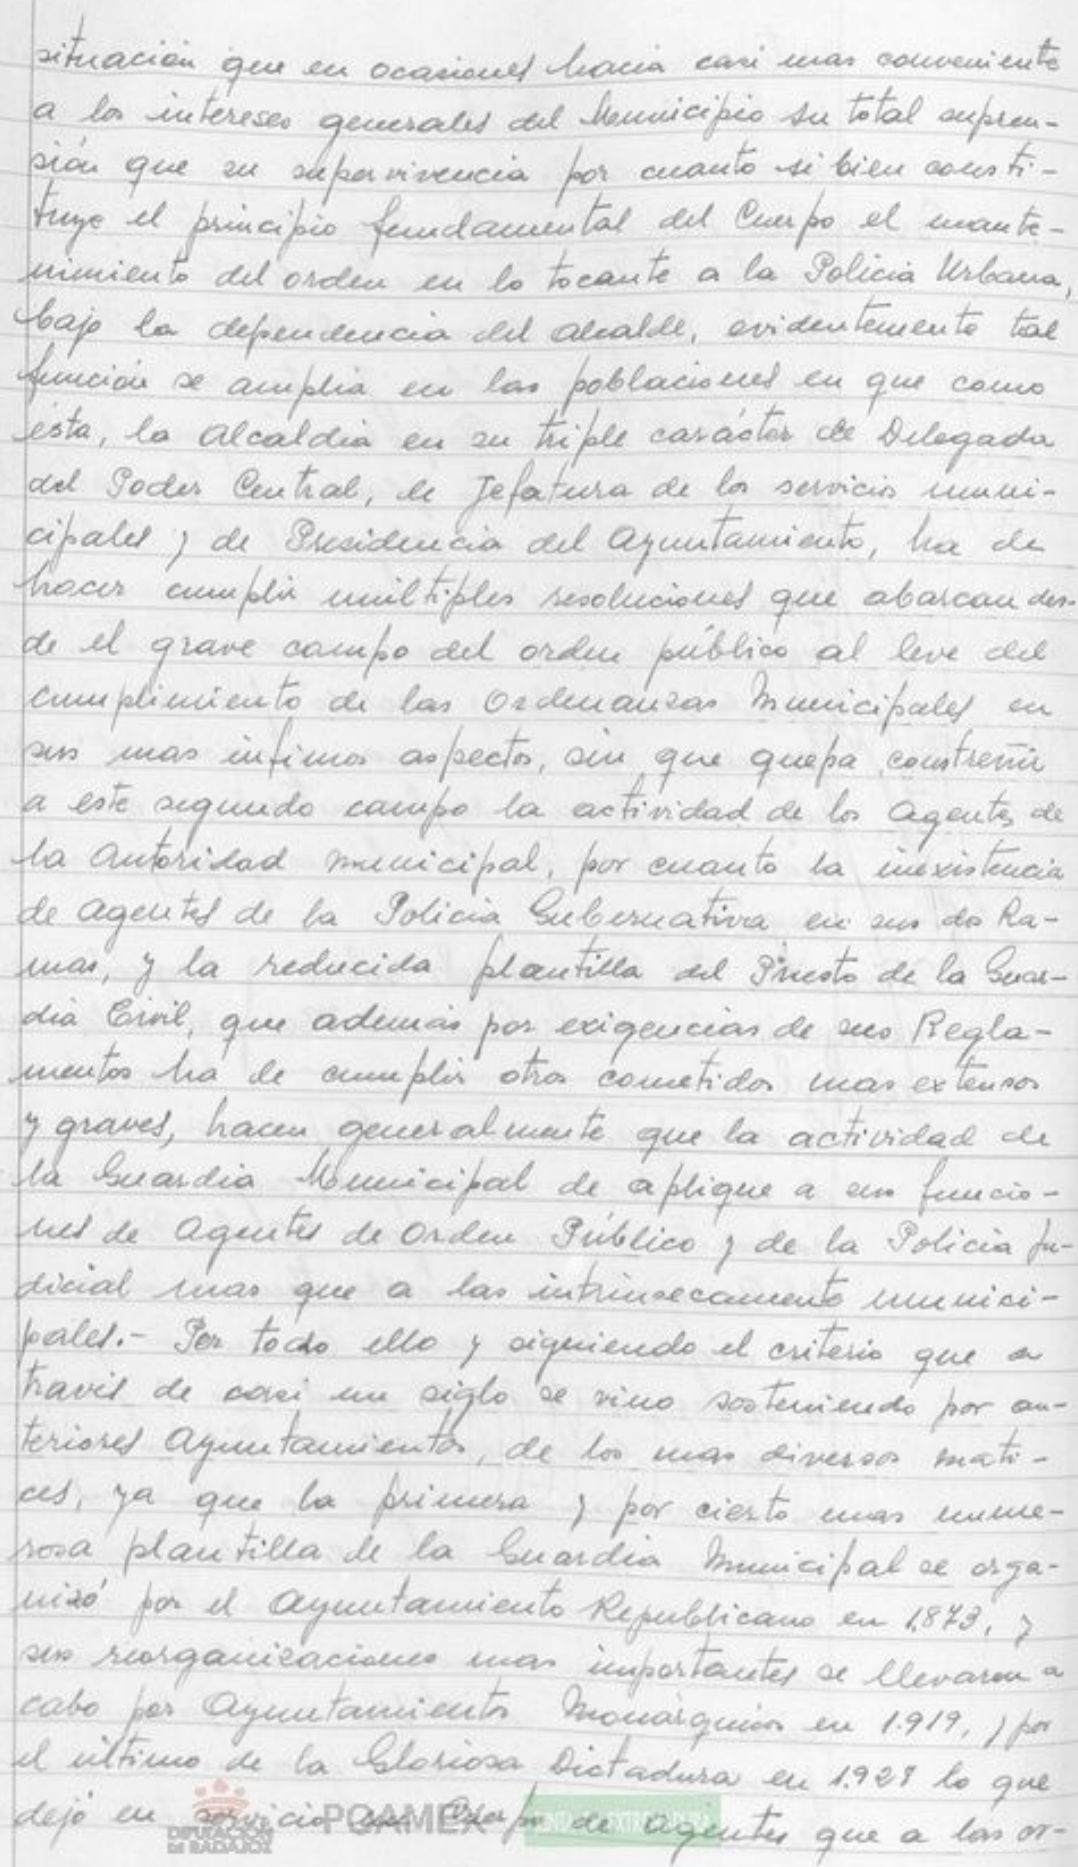 situación que en ocasiones hacia casi mas conveniente
a los intereses generales del Municipio su total supren-
sión que su supervivencia por cuanto si bien consti-
tuye el principio fundamental del Cuerpo el mante-
nimiento del orden en lo tocante a la Policia Urbana,
bajo la dependencia del Alcalde, evidentemente tal
función se amplia en las poblaciones en que como
ésta, la Alcaldia en su triple carácter de Delegada
del Poder Central, de Jefatura de los servicios muni-
cipales y de Presidencia del Ayuntamiento, ha de
hacer cumplir multiples resoluciones que abarcan des-
de el grave campo del orden público al leve del
cumplimiento de las Ordenanzas Municipales en
sus mas infimos aspectos, sin que quepa constreñir
a este segundo campo la actividad de los Agentes de
la Autoridad municipal, por cuanto la inexistencia
de Agentes de la Policia Gubernativa en sus dos Ra-
mas, y la reducida plantilla del Puesto de la Guar-
dia Civil, que además por exigencias de sus Regla-
mentos ha de cumplir otros cometidos mas extensos
y graves, hacen generalmente que la actividad de
la Guardia Municipal de aplique a sus funcio-
nes de Agentes de Orden Público y de la Policia Ju-
dicial mas que a las intrinsecamente munici-
pales.- Por todo ello y siguiendo el criterio que a
través de casi un siglo se vino sosteniendo por an-
teriores Ayuntamientos, de los mas diversos mati-
ces, ya que la primera y por cierto mas nume-
rosa plantilla de la Guardia Municipal se orga-
nizó por el Ayuntamiento Republicano en 1,873, y
sus reorganizaciones mas importantes se llevaron a
cabo por Ayuntamientos Monárquicos en 1.919, y por
el último de la Gloriosa Dictadura en 1.929 lo que
dejó en servicio un Cuerpo de Agentes que a las or-
DIPUTACIÓN
DE BADAJOZ
PCAMEX